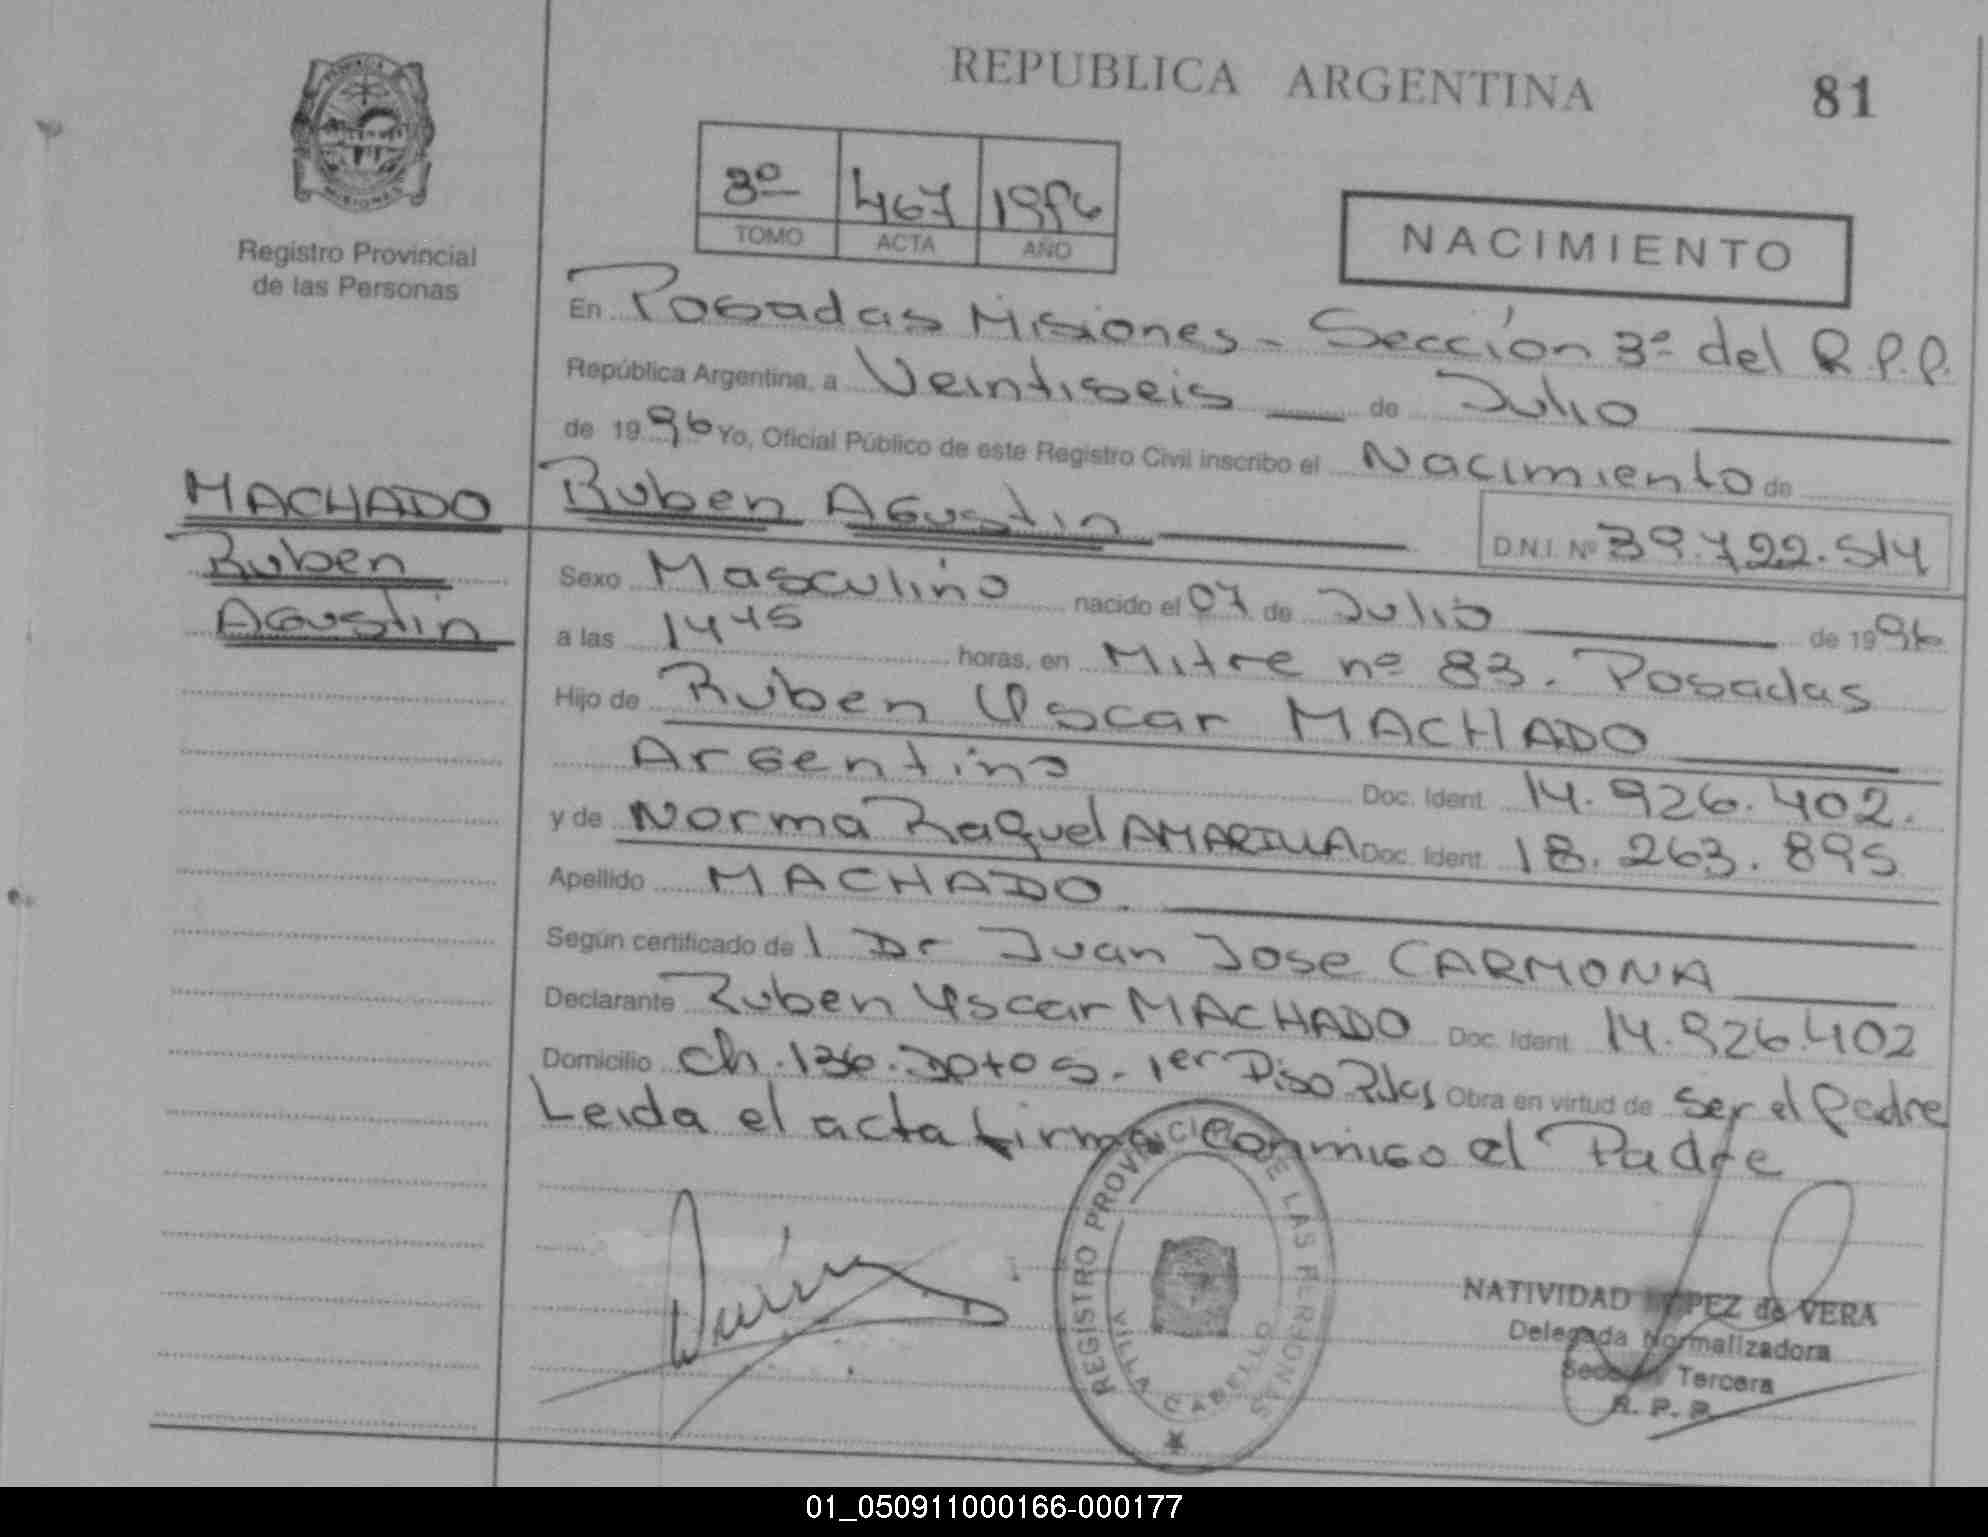 REPUBLICA ARGENTINA
81
Registro Provincial
de las Personas
3º 467 1996
TOMO ACTA AÑO
NACIMIENTO
En Posadas Misiones - Sección 3ª del R.P.P.
República Argentina, a Veintiseis de Julio
de 1996 Yo, Oficial Público de este Registro Civil inscribo el Nacimiento de
MACHADO
Ruben
Agustin
Ruben Agustin
D.N.I. Nº 39.722.514
Sexo Masculino nacido el 07 de Julio de 1996
a las 1445 horas, en Mitre nº 83. Posadas
Hijo de Ruben Oscar MACHADO
Argentino Doc. Ident. 14.926.402.
y de Norma Raquel AMARILLA Doc. Ident. 18.263.895
Apellido MACHADO.
Según certificado del Dr Juan Jose CARMONA
Declarante Ruben Oscar MACHADO Doc. Ident. 14.926.402
Domicilio ch.136. Dpto 5. 1er Piso Obra en virtud de ser el Padre
Leida el acta firma conmigo el Padre
REGISTRO PROVINCIAL DE LAS PERSONAS
VILLA CABELLO
NATIVIDAD LOPEZ de VERA
Delegada Normalizadora
Sección Tercera
R. P. P.
01_050911000166-000177